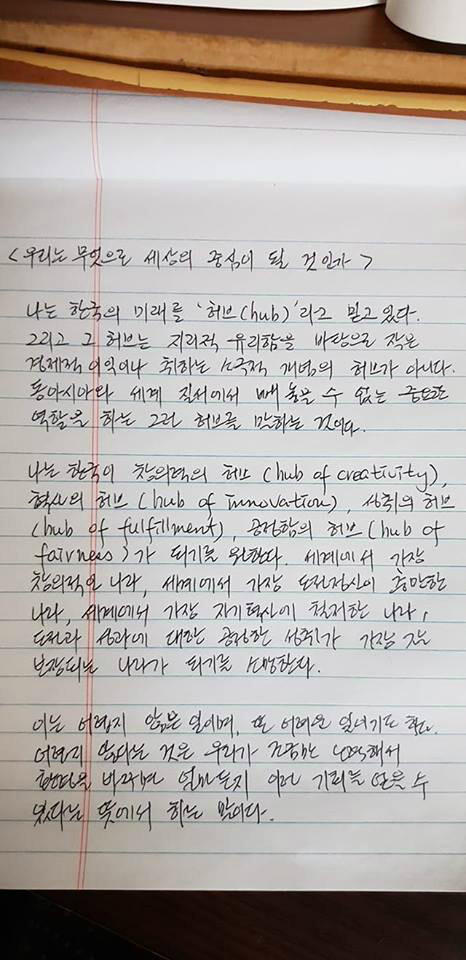 <우리는 무엇으로 세상의 중심이 될 것인가>
나는 한국의 미래를 '허브(hub)'라고 믿고 있다.
그리고 그 허브는 지리적 유리함을 바탕으로 작은
경제적 이익이나 취하는 소극적 개념의 허브가 아니다.
동아시아와 세계 질서에서 빼놓을 수 없는 중요한
역할을 하는 그런 허브를 말하는 것이다.
나는 한국이 창의력의 허브 (hub of creativity),
혁신의 허브 (hub of innovation), 성취의 허브
(hub of fulfillment), 공정함의 허브 (hub of
fairness)가 되기를 원한다. 세계에서 가장
창의적인 나라, 세계에서 가장 도전정신이 충만한
나라, 세계에서 가장 자기혁신에 철저한 나라,
도전과 성과에 대한 공정한 성취가 가장 잘
보장되는 나라가 되기를 소망한다.
이는 어렵지 않은 일이며, 또 어려운 일이기도 하다.
어렵지 않다는 것은 우리가 조금만 노력해서
바라보면 얼마든지 이런 기회를 얻을 수
있다는 뜻에서 하는 말이다.